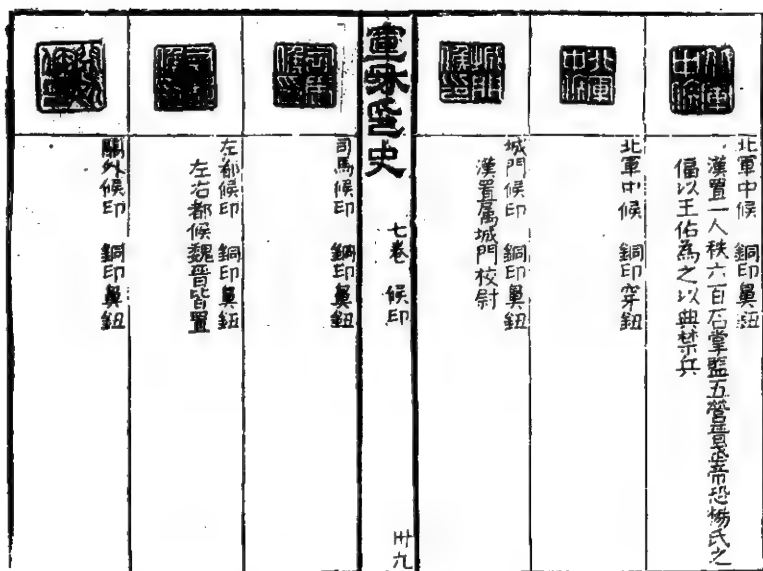 北軍中候 銅印鼻鈕
漢置一人秩六百石掌監五營晉武帝恐楊氏之
偪以王佑為之以典禁兵
北軍中候 銅印穿鈕
城門候印 銅印鼻鈕
漢置屬城門校尉
史
七卷 候印
卅九
司馬候印 銅印鼻鈕
左都候印 銅印鼻鈕
左右都候魏晉皆置
關外候印 銅印鼻鈕
北軍
中候